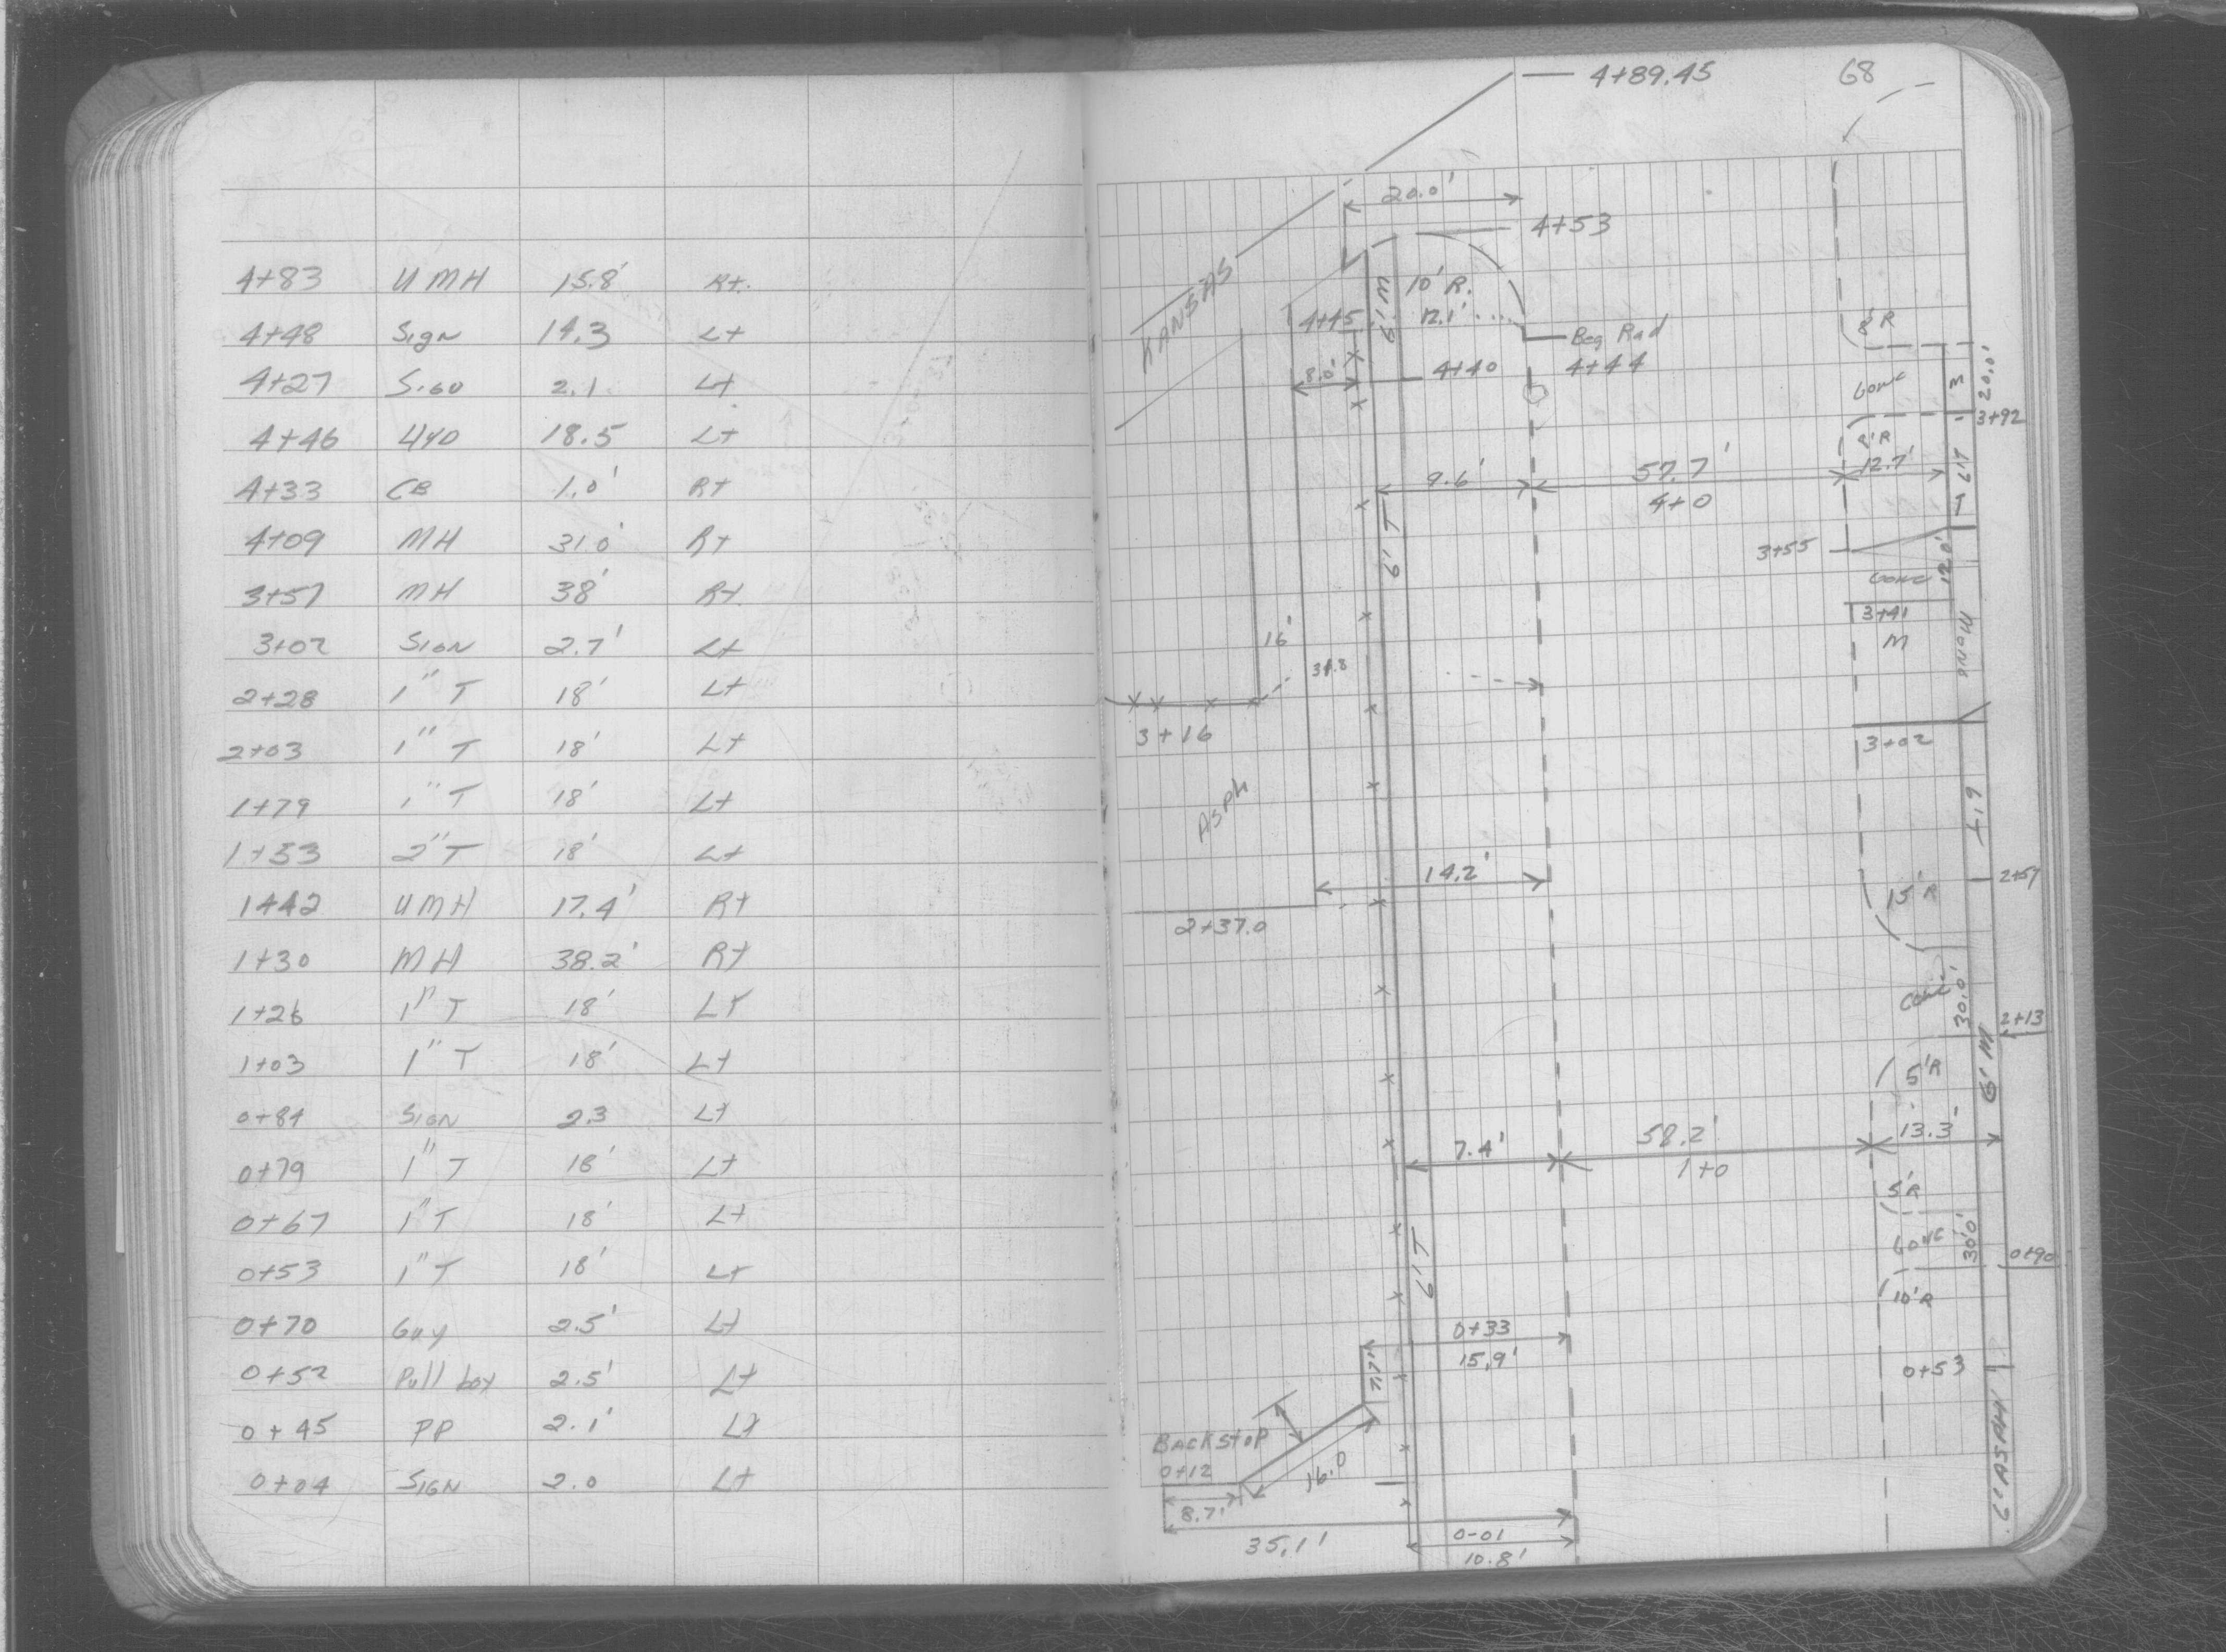 4+83 UMH 15.8' Rt.
4+48 Sign 14.3 Lt
4+27 Sign 2.1 Lt
4+46 Hyd 18.5 Lt
4+33 CB 1.0' Rt
4+09 MH 31.0' Rt
3+57 MH 38' Rt
3+02 SIGN 2.7' Lt
2+28 1" T 18' Lt
2+03 1" T 18' Lt
1+79 1" T 18' Lt
1+53 2" T 18' Lt
1+42 UMH 17.4' Rt
1+30 MH 38.2' Rt
1+26 1" T 18' Lt
1+03 1" T 18' Lt
0+84 SIGN 2.3 Lt
0+79 1" T 18' Lt
0+67 1" T 18' Lt
0+53 1" T 18' Lt
0+70 Guy 2.5' Lt
0+52 Pull box 2.5' Lt
0+45 PP 2.1' Lt
0+04 SIGN 2.0 Lt
4+89.45
68
20.0'
4+53
KANSAS
6' M
10' R.
4+45
12.1'
Beg Rad
4+44
4+40
8.0'
8'R
Conc
M
20.0'
3+92
8'R
12.7'
9.6'
57.7'
4+0
6' T
6' T
3+55
Conc
12.0'
3+41
M
Mono
16'
31.8
3+16
3+02
Asph
6' T
14.2'
2+57
15'R
2+37.0
Conc
30.0'
2+13
6' M
5'R
7.4'
58.2'
13.3'
1+0
5'R
Conc
30.0'
0+90
10'R
6' T
0+33
15.9'
0+53
Backstop
0+12
16.0
8.7'
35.1'
0-01
10.8'
6' ASPH